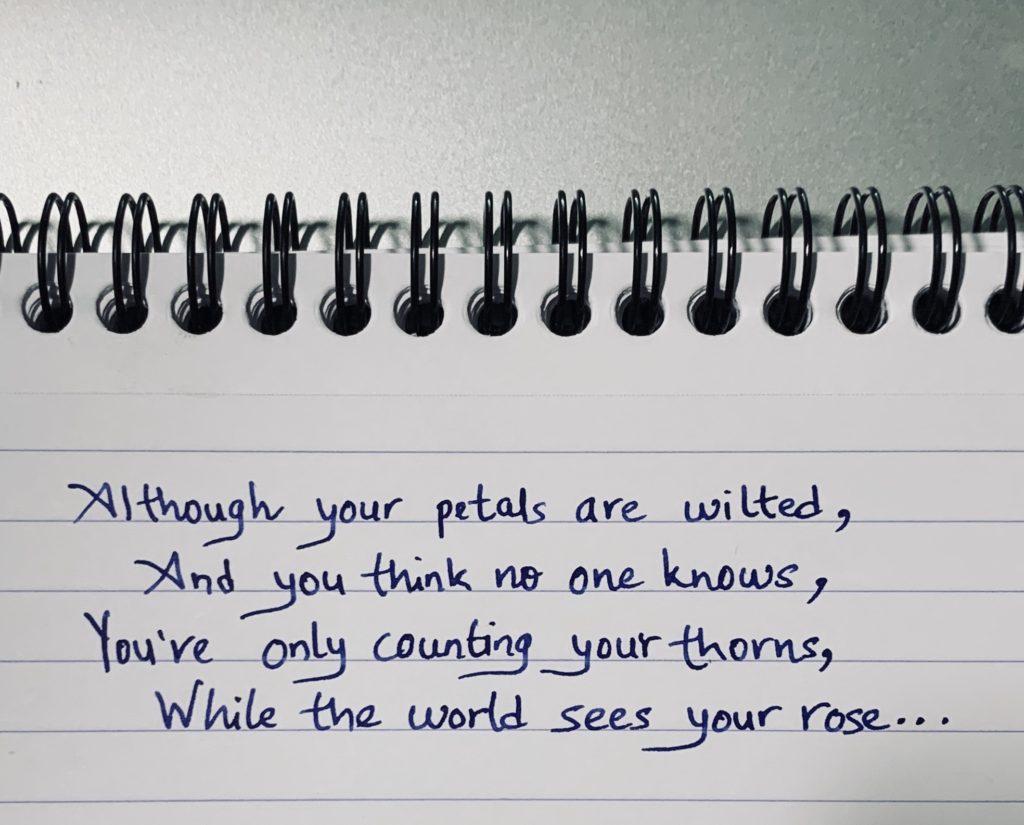 Although your petals are wilted,
And you think no one knows,
You're only counting your thorns,
While the world sees your rose...